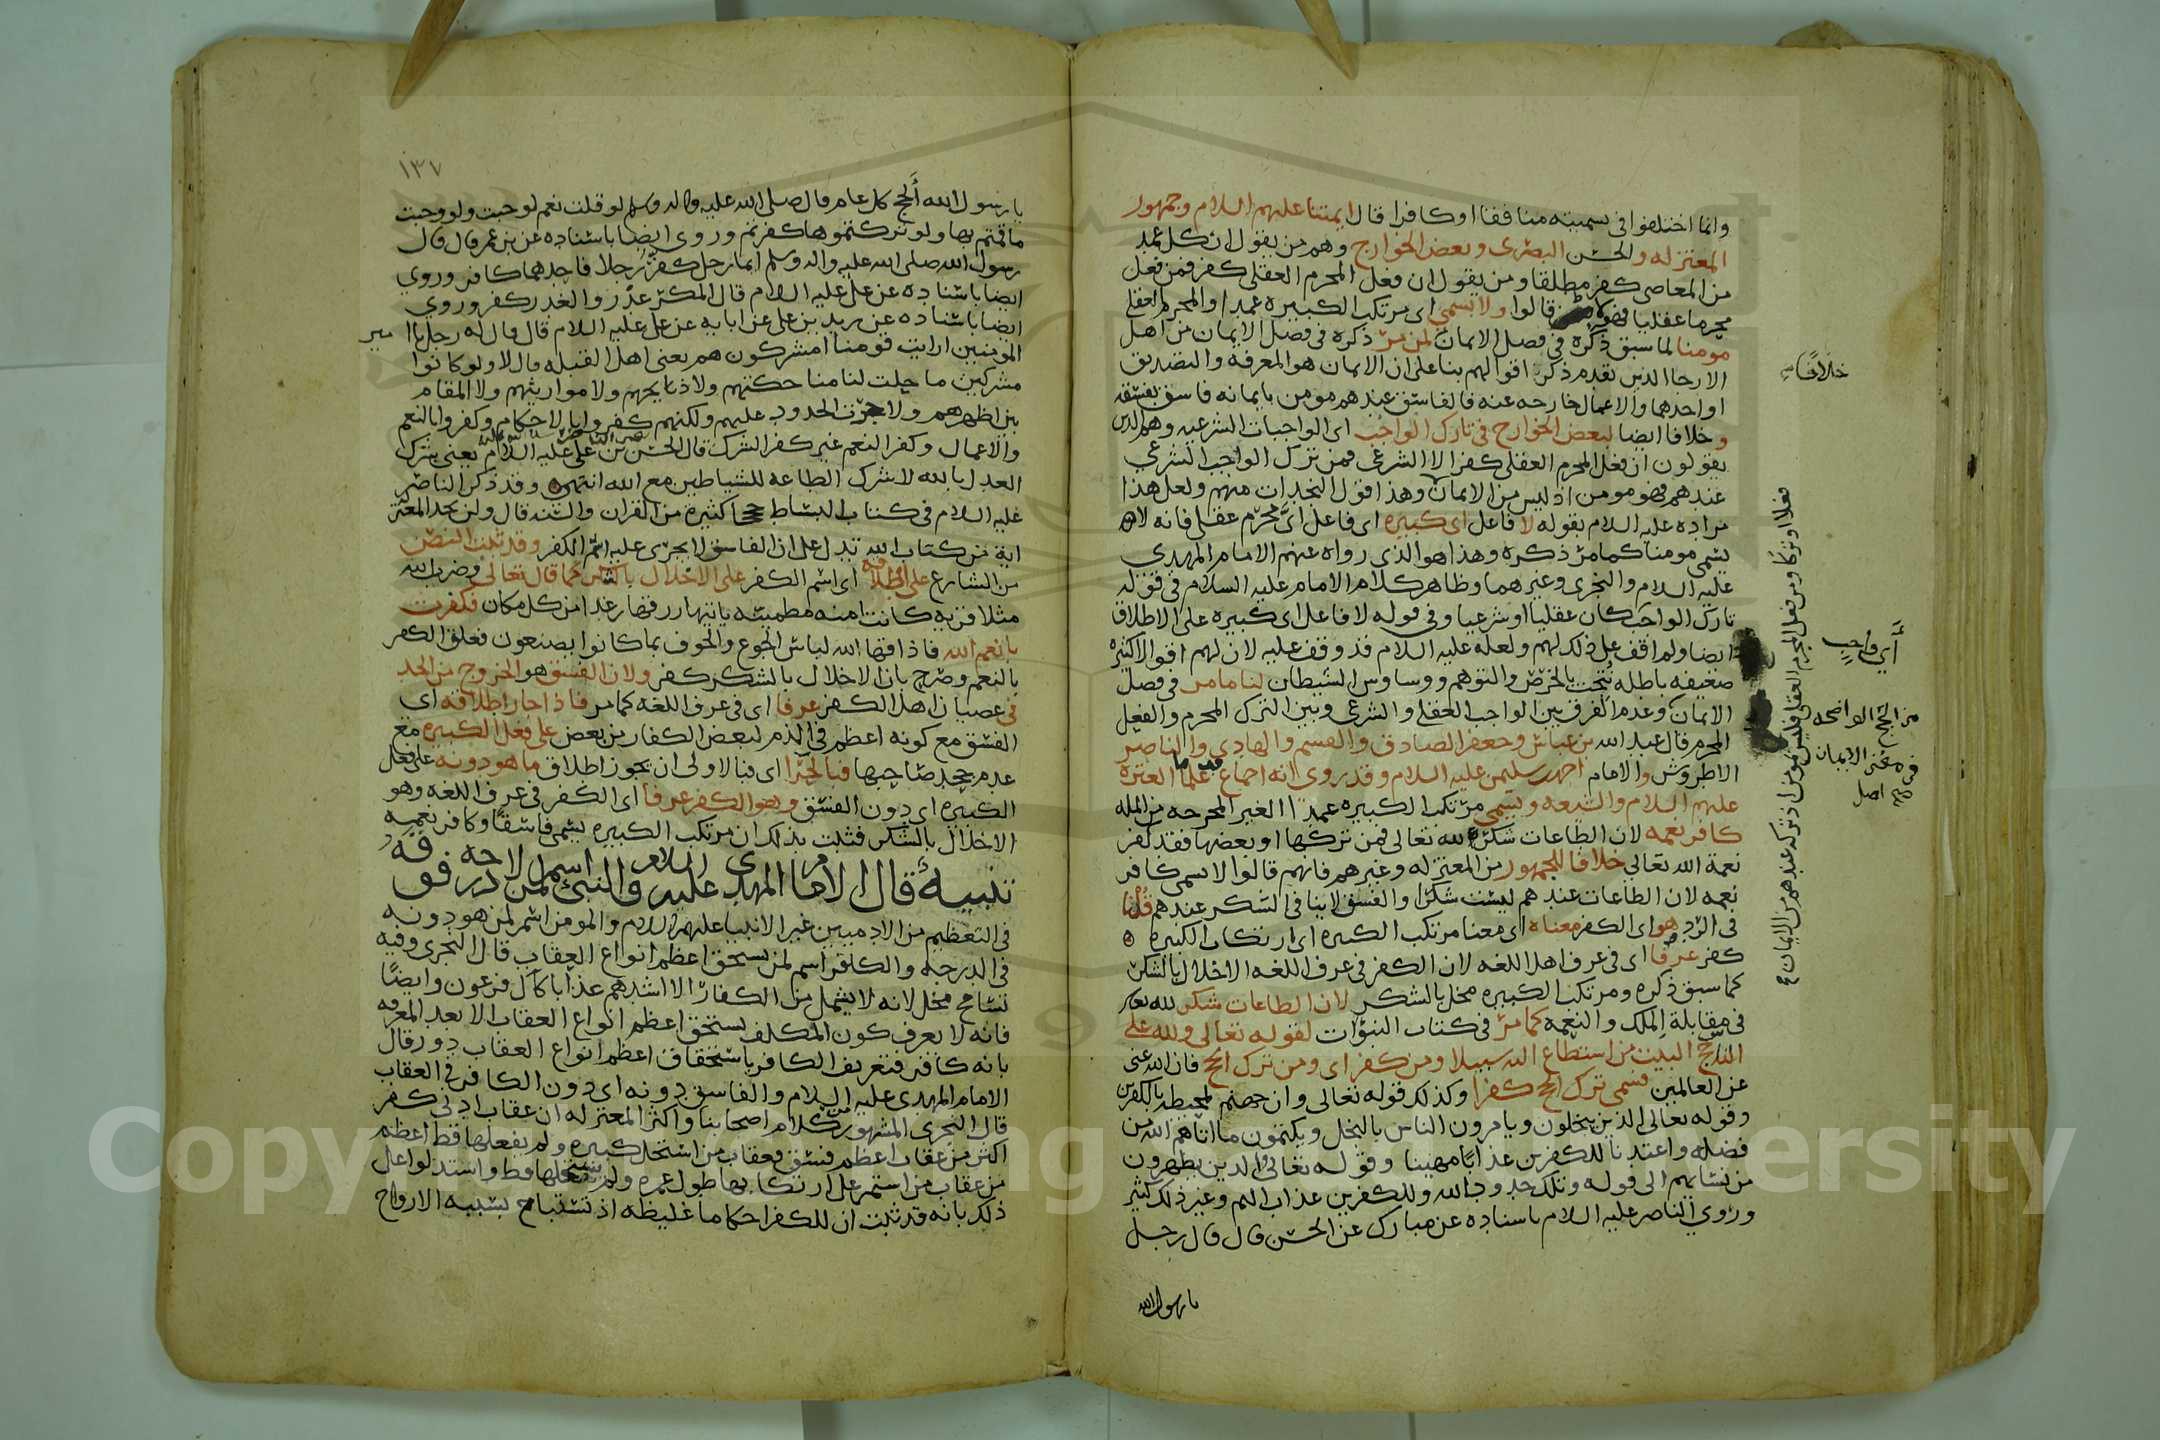 وانما اختلفوا في تسميته منافقا او كافرا قال ايمتنا عليهم السلام وجمهور
المعتزله والحسن البصري وبعض الخوارج وهم من يقول ان كل عمد
من المعاصي كفر مطلقا ومن يقول ان فعل المحرم العقلي كفر فمن فعل
محرما عقليا فهو كافر قالوا ولا يسمى اي مرتكب الكبيره عمدا والمحرم العقلي
مومنا لما سبق ذكره في فصل الايمان لمن مر ذكره في فصل الايمان من اهل
الارجا الذين تقدم ذكر اقوالهم بنا على ان الايمان هو المعرفه والتصديق
او احدهما والاعمال خارجه عنه فالفاسق عندهم مومن بايمانه فاسق بفسقه
وخلافا ايضا لبعض الخوارج في تارك الواجب اي الواجبات الشرعيه وهم الذين
يقولون ان فعل المحرم العقلي كفر الا الشرعي فمن ترك الواجب الشرعي
عندهم فهو مومن اذ ليس من الايمان وهذا قول النجدات منهم ولعل هذا
مراده عليه السلام بقوله لا فاعل اي كبيره اي فاعل اي محرم عقلي فانه لا
يسمى مومنا كما مر ذكره وهذا هو الذي رواه عنهم الامام المهدي
عليه السلام والنجري وغيرهما وظاهر كلام الامام عليه السلام في قوله
تارك الواجب كان عقليا او شرعيا وفي قوله لا فاعل اي كبيره على الاطلاق
ايضا ولم اقف على ذلك لهم ولعله عليه السلام قد وقف عليه لان لهم اقوالا كثيره
ضعيفه باطله نتجت بالخرص والتوهم ووساوس الشيطان لنا ما مر في فصل
الايمان وعدم الفرق بين الواجب العقلي والشرعي وبين الترك المحرم والفعل
المحرم قال عبد الله بن عباس وجعفر الصادق والقسم والهادي والناصر
الاطروش والامام احمد بن سليمن عليه السلام وقد روي انه اجماع قدما علما العتره
عليهم السلام والشيعه ويسمى مرتكب الكبيره عمدا الغير المخرجه من المله
كافر نعمه لان الطاعات شكر لله تعالى فمن تركها او بعضها فقد كفر
نعمة الله تعالى خلافا للجمهور من المعتزله وغيرهم فانهم قالوا لا يسمى كافر
نعمه لان الطاعات عندهم ليست شكرا والفسق لا ينافي الشكر عندهم قلنا
في الرد هو اي الكفر معناه اي معنا مرتكب الكبيره اي ارتكاب الكبيره
كفر عرفا اي في عرف اهل اللغه لان الكفر في عرف اللغه الاخلال بالشكر
كما سبق ذكره ومرتكب الكبيره مخل بالشكر لان الطاعات شكر لله تعالى
في مقابلة الملك والنعمه كما مر في كتاب النبؤات لقوله تعالى ولله على
الناس حج البيت من استطاع اليه سبيلا ومن كفر اي ومن ترك الحج فان الله غني
عن العالمين فسمى ترك الحج كفرا وكذلك قوله تعالى وان جهنم لمحيطه بالكفرين
وقوله تعالى الذين يبخلون ويامرون الناس بالبخل ويكتمون ما اتاهم الله من
فضله واعتدنا للكفرين عذابا مهينا وقوله تعالى والذين يظهرون
من نسايهم الى قوله وتلك حدود الله وللكفرين عذاب اليم وغير ذلك كثير
وروى الناصر عليه السلام باسناده عن مبارك عن الحسن قال قال رجل
يا رسول الله
خلافا
اي واجب
من الحجج الواضحه
في معنى الايمان
صح اصل
فعلا او تركا ومن فعل المحرم العقلي فليس بمومن اذ تركه عندهم من الايمان
١٣٧
يا رسول الله الحج كل عام قال صلى الله عليه واله وسلم لو قلت نعم لوجبت ولو وجبت
ما قمتم بها ولو تركتموها كفرتم وروى ايضا باسناده عن بن عمر قال قال
رسول الله صلى الله عليه واله وسلم ايما رجل كفر رجلا فاحدهما كافر وروي
ايضا باسناده عن علي عليه السلام قال المكر غدر والغدر كفر وروي
ايضا باسناده عن زيد بن علي عن ابايه عن علي عليه السلام قال قال له رجل يا امير
المومنين ارايت قومنا امشركون هم يعني اهل القبله قال لا ولو كانوا
مشركين ما حلت لنا مناكحتهم ولا ذبايحهم ولا مواريثهم ولا المقام
بين اظهرهم ولا جرت الحدود عليهم ولكنهم كفروا بالاحكام وكفروا بالنعم
والاعمال وكفر النعم غير كفر الشرك قال الحسن بن علي عليه السلام يعني شرك
العدل بالله لا شرك الطاعه للشياطين مع الله انتهى وقد ذكر الناصر
عليه السلام في كتاب البساط حججا كثيره من القران والسنه قال ولن يجد المعتزلة
اية من كتاب الله تدل على ان الفاسق لا يجري عليه اسم الكفر وقد ثبت النص
من الشارع على اطلاقه اي اسم الكفر على الاخلال بالشكر كما قال تعالى وضرب الله
مثلا قرية كانت امنه مطمينه ياتيها رزقها رغدا من كل مكان فكفرت
بانعم الله فاذاقها الله لباس الجوع والخوف بما كانوا يصنعون فعلق الكفر
بالنعم وصرح بان الاخلال بالشكر كفر ولان الفسق هو الخروج من الحد
في عصيان اهل الكفر عرفا اي في عرف اللغه كما مر فاذا جاز اطلاقه اي
الفسق مع كونه اعظم في الذم لبعض الكفار من بعض على فعل الكبيره مع
عدم جحد صاحبها فبالحرا اي فبالاولى ان يجوز اطلاق ما هو دونه على فعل
الكبيره اي دون الفسق وهو الكفر عرفا اي الكفر في عرف اللغه وهو
الاخلال بالشكر فثبت بذلك ان مرتكب الكبيره يسمى فاسقا وكافر نعمه
تنبيه قال الامام المهدي عليه السلام والنبي اسم لمن لا درجه فوق درجته
في التعظيم من الادميين غير الانبيا عليهم السلام والمومن اسم لمن هو دونه
في الدرجه والكافر اسم لمن يستحق اعظم انواع العقاب قال النجري وفيه
تسامح مخل لانه لا يشمل من الكفار الا اشدهم عذابا كآل فرعون وايضا
فانه لا يعرف كون المكلف يستحق اعظم انواع العقاب الا بعد المعرفه
بانه كافر فتعريف الكافر باستحقاق اعظم انواع العقاب دور قال
الامام المهدي عليه السلام والفاسق دونه اي دون الكافر في العقاب
قال النجري المشهور من كلام اصحابنا واكثر المعتزله ان عقاب ادنى كفر
اكثر من عقاب اعظم فسق فعقاب من استحل كبيره ولم يفعلها قط اعظم
من عقاب من استمر على ارتكابها طول عمره ولم يستحلها قط واستدلوا على
ذلك بانه قد ثبت ان للكفر احكاما غليظه اذ تستباح بسببه الارواح